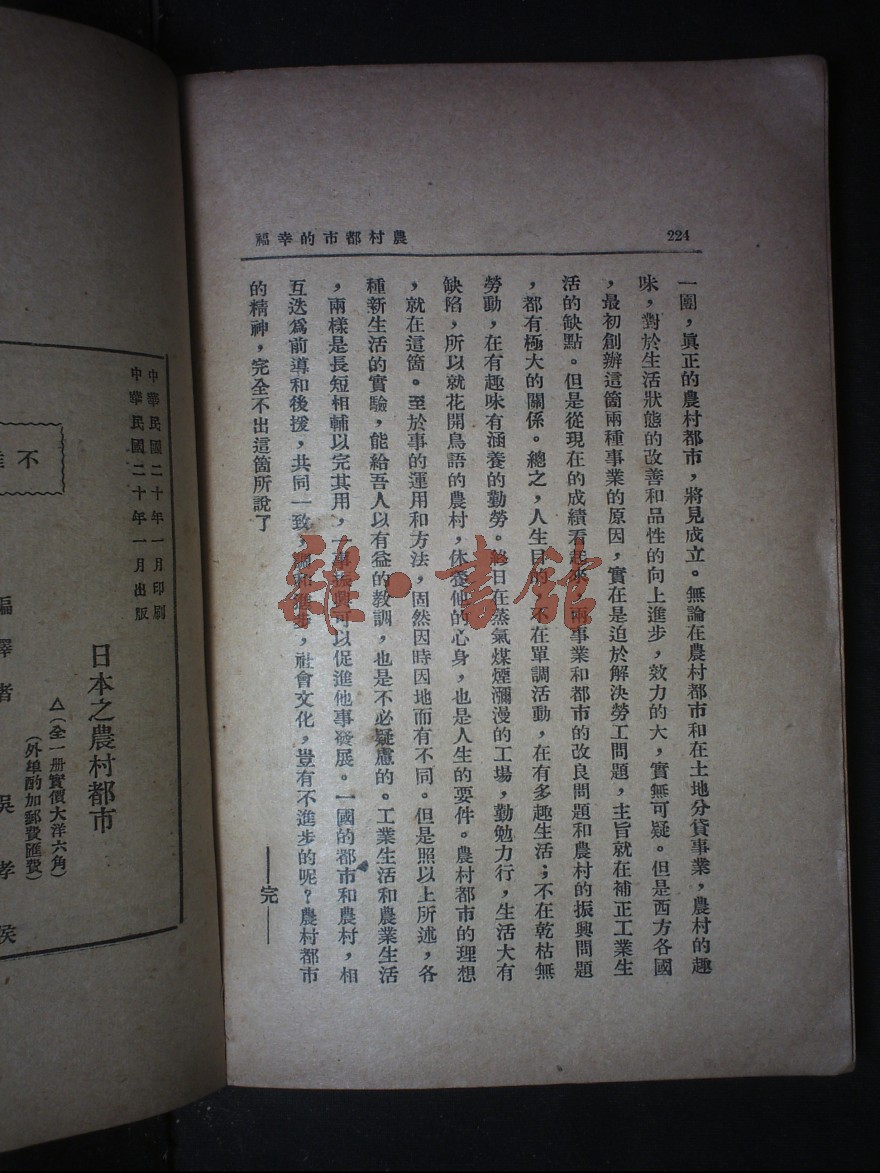 224
農村都市的幸福
一團，眞正的農村都市，將見成立。無論在農村都市和在土地分貸事業，農村的趣
味，對於生活狀態的改善和品性的向上進步，效力的大，實無可疑。但是西方各國
，最初創辦這箇兩種事業的原因，實在是迫於解決勞工問題，主旨就在補正工業生
活的缺點。但是從現在的成績看起來，兩事業和都市的改良問題和農村的振興問題
，都有極大的關係。總之，人生目的，不在單調活動，在有多趣生活；不在乾枯無
勞動，在有趣味有涵養的勤勞。終日在蒸氣煤煙瀰漫的工場，勤勉力行，生活大有
缺陷，所以就花開鳥語的農村，休養他的心身，也是人生的要件。農村都市的理想
，就在這箇。至於事的運用和方法，固然因時因地而有不同。但是照以上所述，各
種新生活的實驗，能給吾人以有益的教訓，也是不必疑慮的。工業生活和農業生活
，兩樣是長短相輔以完其用，一事振興可以促進他事發展。一國的都市和農村，相
互迭爲前導和後援，共同一致，調和進步，社會文化，豈有不進步的呢？農村都市
的精神，完全不出這箇所說了
——完——
中華民國二十年一月印刷
中華民國二十年一月出版
不
日本之農村都市
△（全一册實價大洋六角）
（外埠酌加郵費匯費）
編譯者 吳孝侯
雜·書館